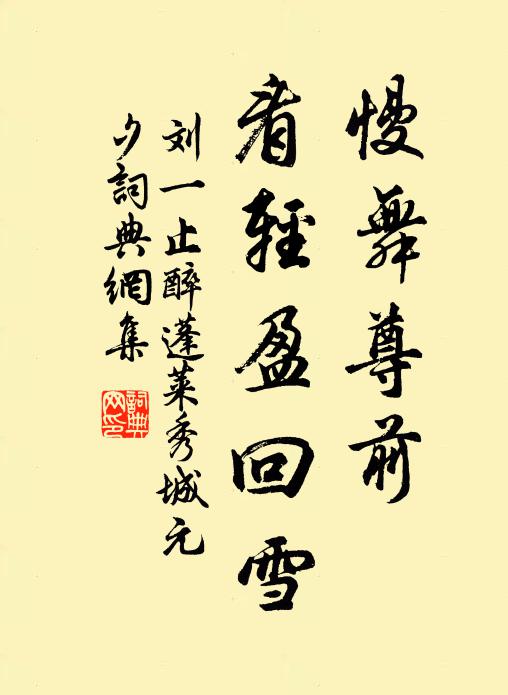 慢舞尊前
看輕盈回雪
刘一止醉蓬萊秀城元
夕詞典網集
詞典网印